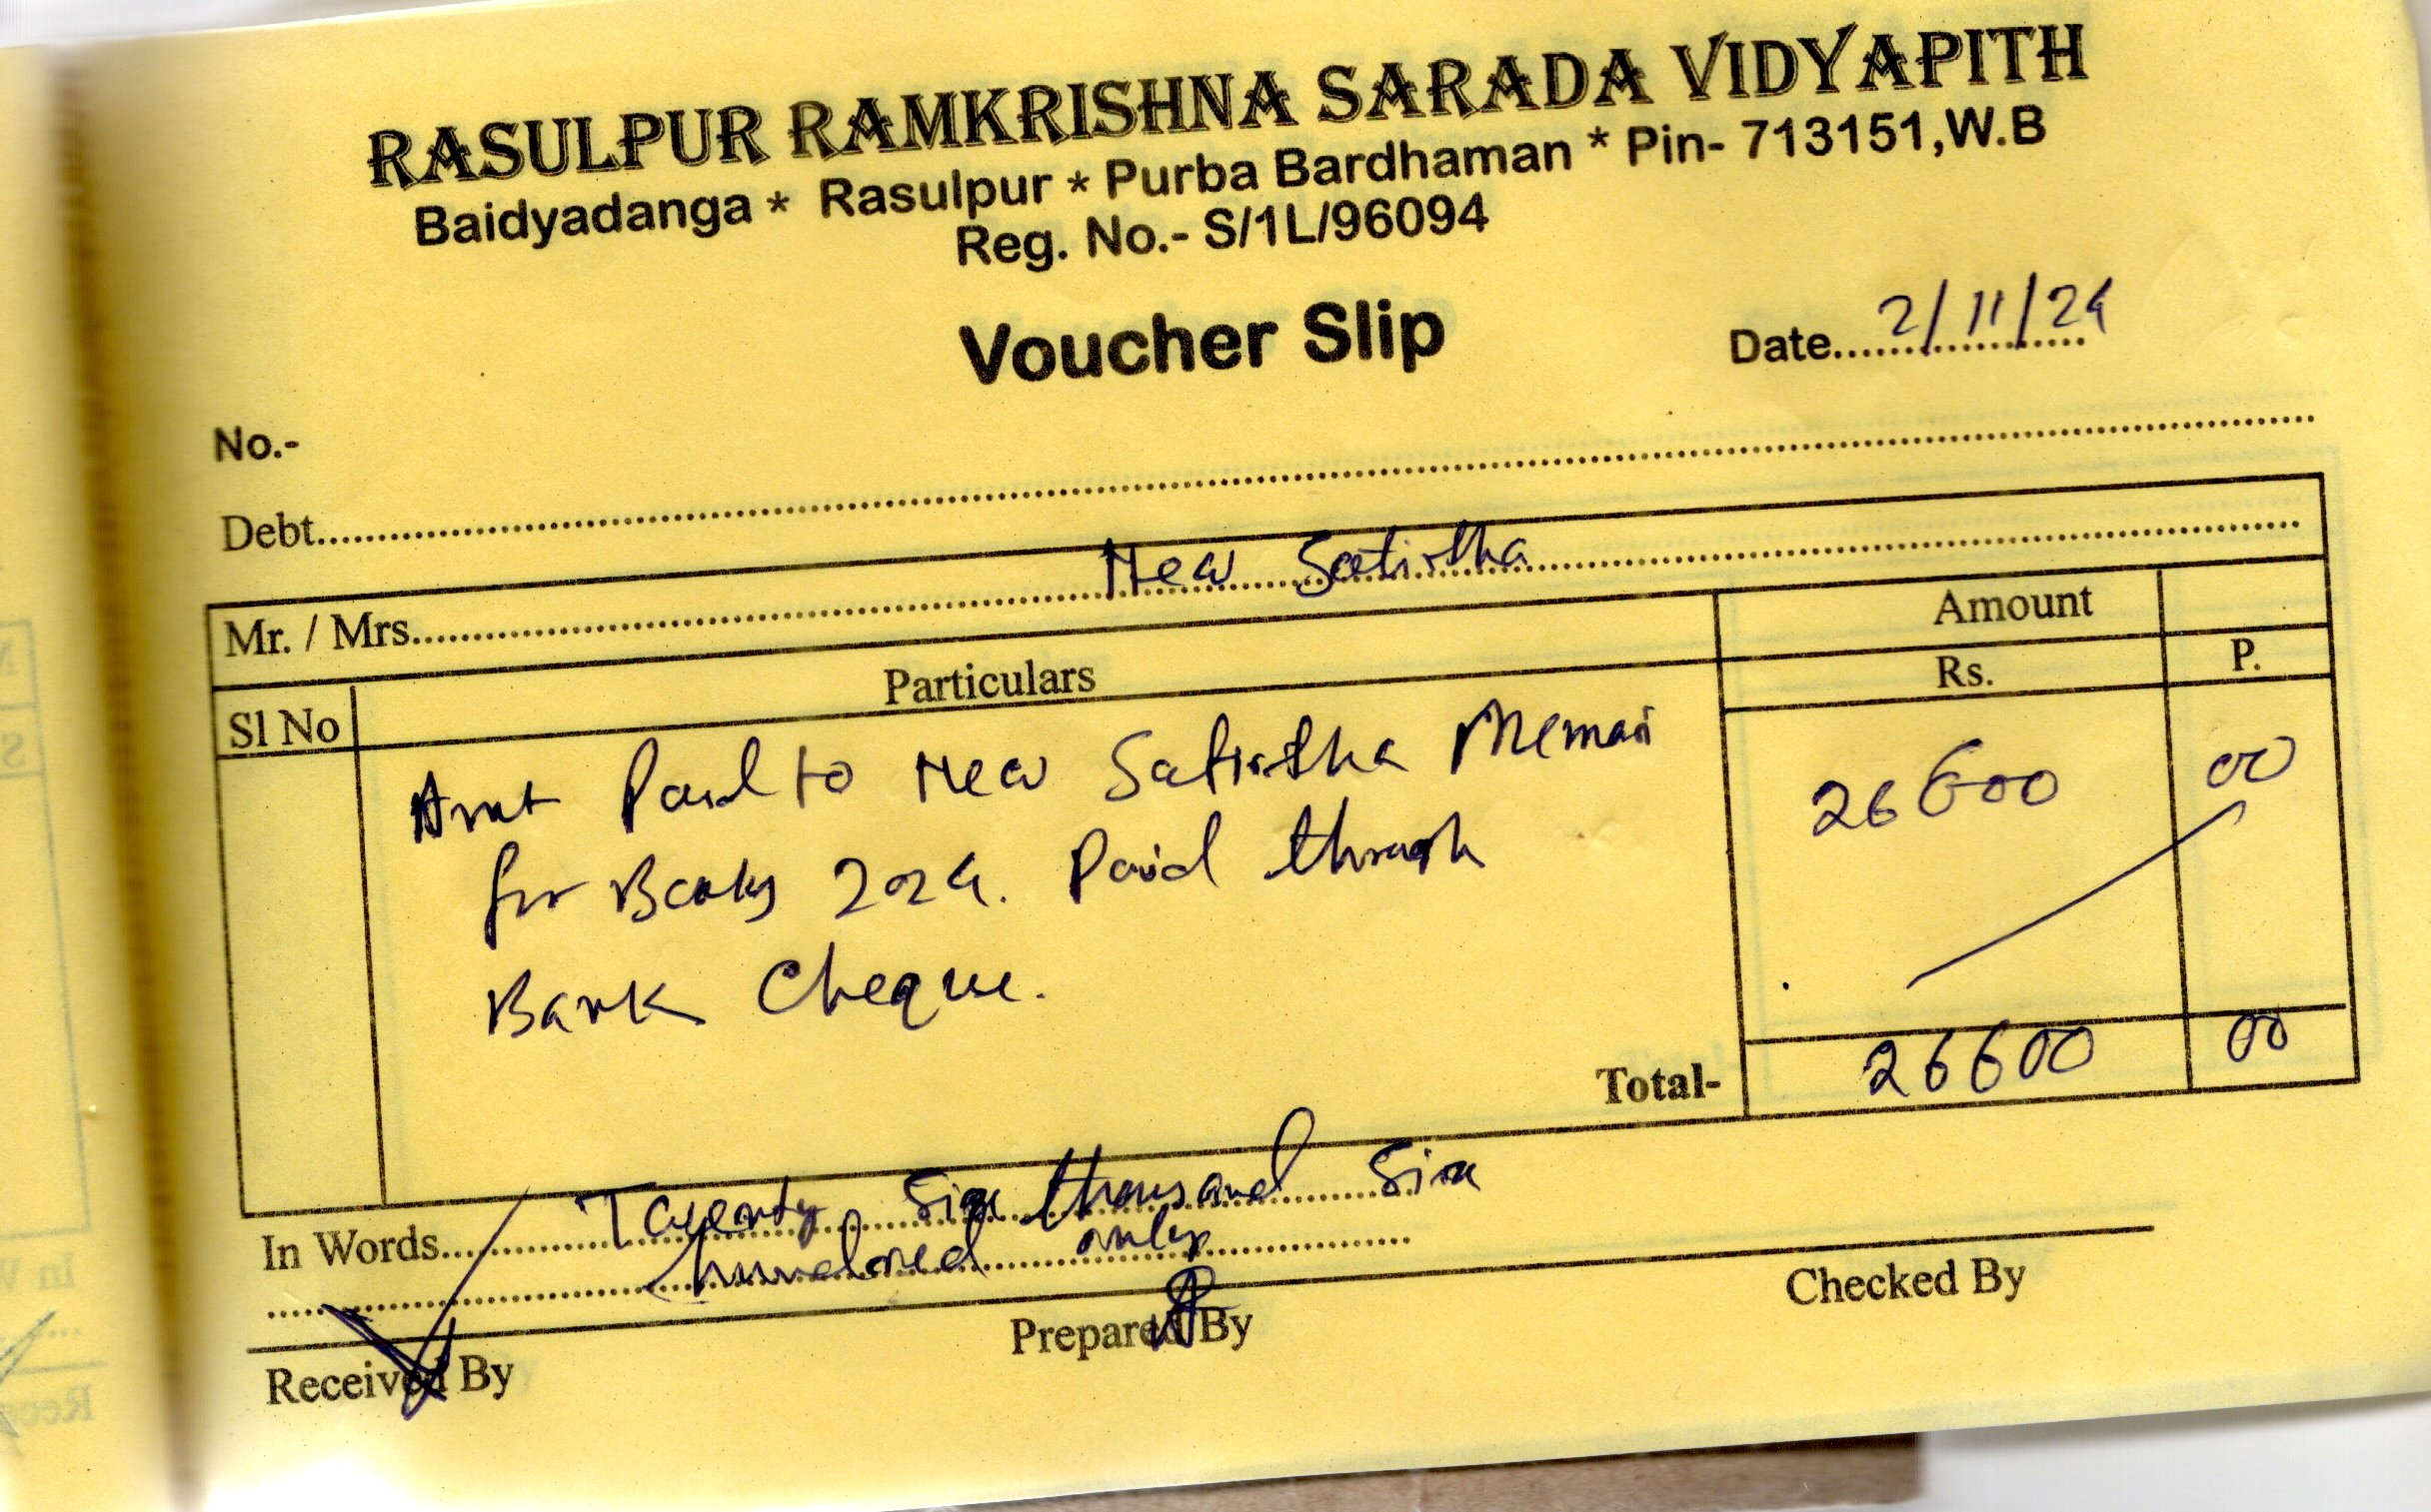 RASULPUR RAMKRISHNA SARADA VIDYAPITH
Baidyadanga * Rasulpur * Purba Bardhaman * Pin- 713151,W.B
Reg. No.- S/1L/96094
Voucher Slip
Date 2/11/24
No.-
Debt
Mr. / Mrs. New Satirtha
Sl No Particulars Amount
Rs. P.
Amt Paid to New Satirtha Memari 26600 00
for Books 2024. Paid through
Bank Cheque.
Total- 26600 00
In Words Twenty Six thousand Six
hundred only
Received By Prepared By Checked By